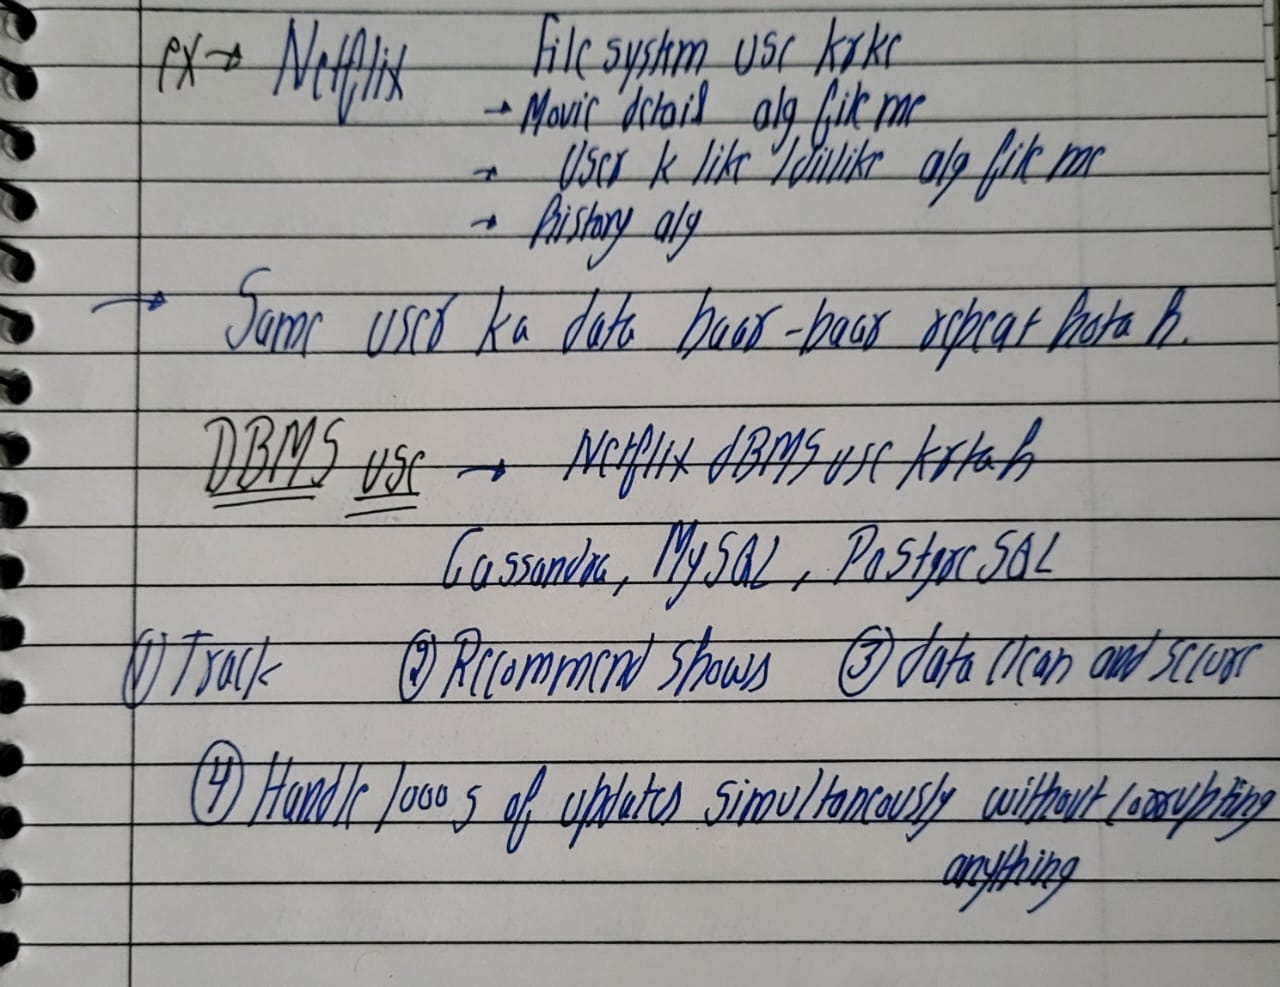 ex → Netflix File system use krke
→ Movie detail alg file me
→ User k like / dislike alg file me
→ History alg
→ Same user ka data baar-baar repeat hota h.
DBMS use → Netflix dBMS use krta h
Cassandra, MySQL, PostgreSQL
① Track ② Recommend shows ③ data clean and secure
④ Handle 1000s of updates simultaneously without corrupting
anything